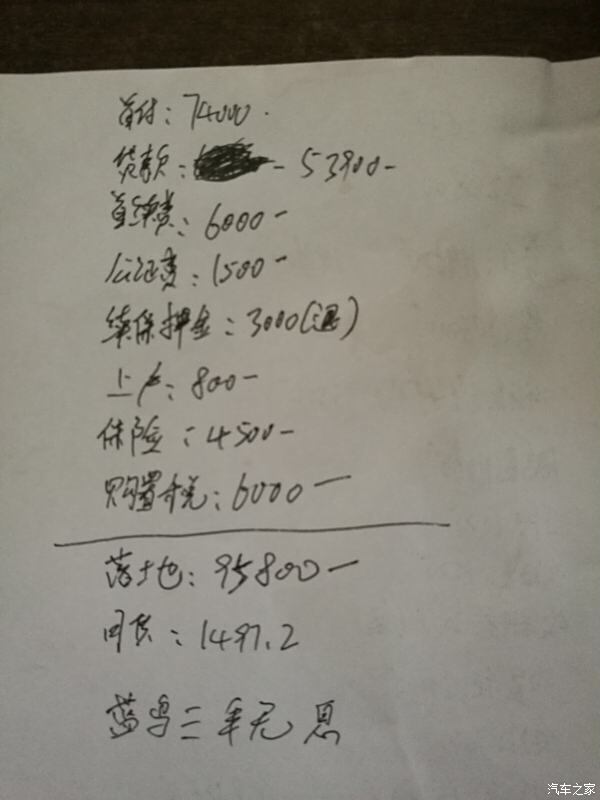 首付：74000.
贷款： - 53900-
首续费：6000-
公证费：1500-
续保押金：3000(退)
上户：800-
保险：4500-
购置税：6000-
落地：95800-
月供：1497.2
蓝鸟三年无息
汽车之家